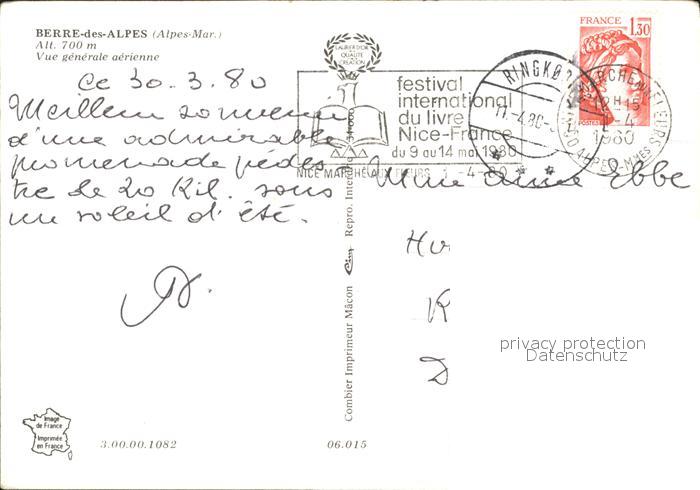 BERRE-des-ALPES (Alpes-Mar.)
Alt. 700 m
Vue générale aérienne
Ce 30.3.80
Meilleur souvenir
d'une admirable
promenade pédes
tre de 20 Kil. sous
un soleil d'été.
LAURIER D'OR
DE LA
QUALITÉ
CRÉATION
festival
international
du livre
Nice-France
du 9 au 14 mai 1980
NICE MARCHÉ AUX FLEURS 1-4-80
RINGKØ
11.-4.80
FRANCE
1,30
POSTES
12H15
1-4
1980
06 ALPES-Mmes
Mme Anne Ebbe
Hu
K
D
privacy protection
Datenschutz
Combier Imprimeur Mâcon Cim Repro. Interdite
Image
de France
Imprimée
en France
3.00.00.1082
06.015